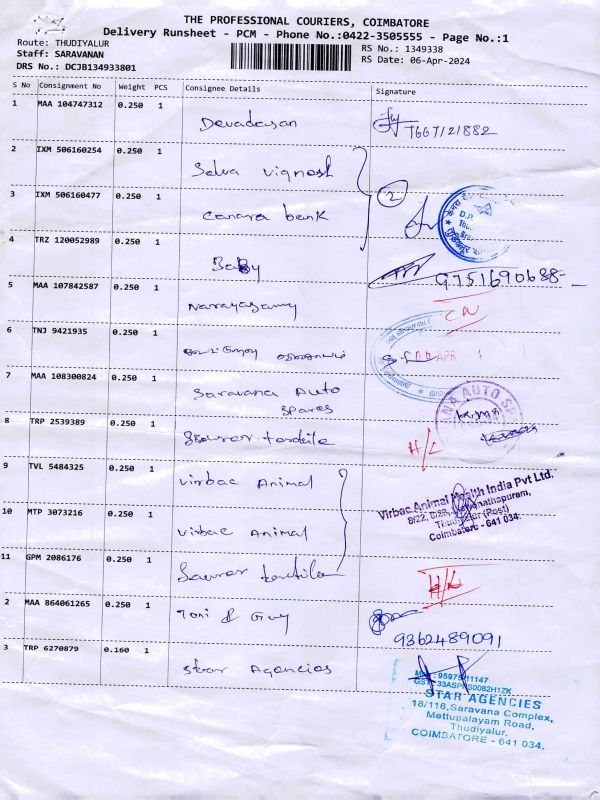 THE PROFESSIONAL COURIERS, COIMBATORE
Delivery Runsheet - PCM - Phone No.:0422-3505555 - Page No.:1
Route: THUDIYALUR
Staff: SARAVANAN
DRS No.: DCJB134933801
RS No.: 1349338
RS Date: 06-Apr-2024
S No Consignment No Weight PCS Consignee Details Signature
1 MAA 104747312 0.250 1 Devadasan 7667121882
2 IXM 506160254 0.250 1 Selva vignesh
3 IXM 506160477 0.250 1 Canara bank 2
4 TRZ 120052989 0.250 1 Baby 9751690688
5 MAA 107842587 0.250 1 Narayasamy
6 TNJ 9421935 0.250 1
APR
7 MAA 108300824 0.250 1 Saravana Auto
Spares
NA AUTO SP
8 TRP 2539389 0.250 1 H/L
9 TVL 5484325 0.250 1 Virbac Animal
Virbac Animal Health India Pvt Ltd.
Thudiyalur (Post)
Coimbatore - 641 034.
10 MTP 3073216 0.250 1 Virbac Animal
11 GPM 2086176 0.250 1
2 MAA 864061265 0.250 1 Toni & Guy 9362489091
3 TRP 6270879 0.160 1 Star Agencies
STAR AGENCIES
18/116,Saravana Complex,
Mettupalayam Road,
Thudiyalur,
COIMBATORE - 641 034.